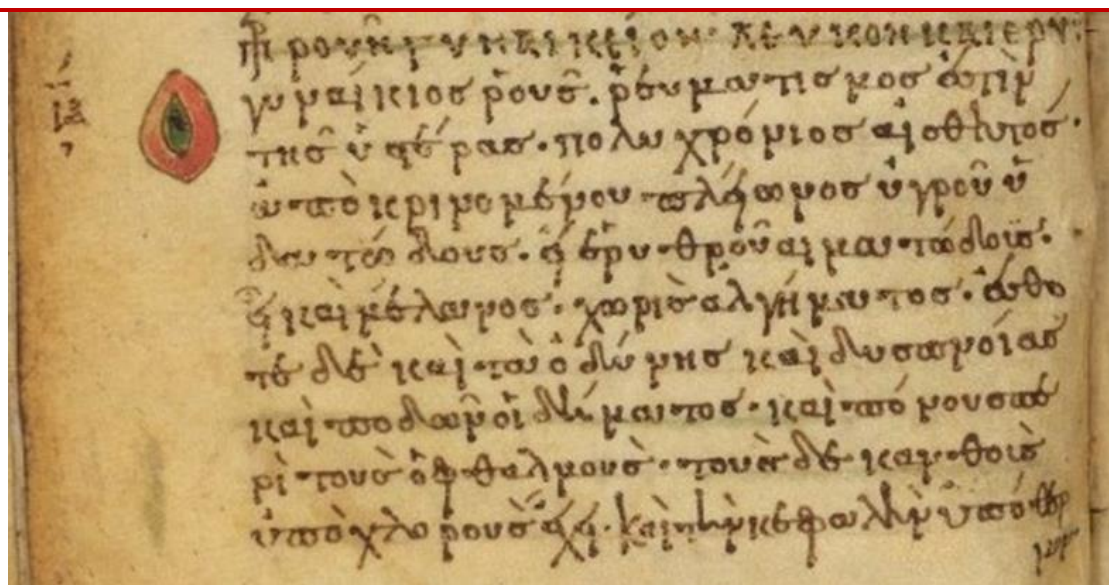 περὶ ροῦ γυναικείου λευκοῦ καὶ ερυ
γυναίκιος ῥοῦς. ῥευματισμος ἐστὶν
τῆς ὑστέρας. πολυχρόνιος αἰσθητός.
ἀποκρινομένου πλέωνος ὑγροῦ ὑ
δατώδους. ἢ ερυθροῦ αιματώδοις.
ἢ καὶ μέλανος. χωρὶς αλγήματος. ἔσθο
τε δὲ καὶ τοὺ ὀδύνης καὶ δυσπνοίας
καὶ ποδῶν οἰδήματος. καὶ πόνους πε
ρὶ τοὺς ὀφθαλμοὺς. τοὺς δὲ κανθοὺς
ὑποχλορους ἔχει. καὶ τὴν κεφαλὴν ὑπόθερ
μον